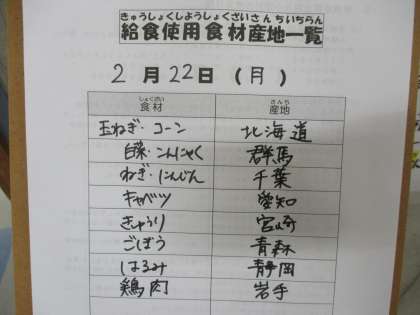 きゅうしょくしようしょくざいさんちいちらん
給食使用食材産地一覧
2月22日(月)
しょくざい さんち
食材 産地
玉ねぎ・コーン 北海道
白菜・こんにゃく 群馬
ねぎ・にんじん 千葉
キャベツ 愛知
きゅうり 宮崎
ごぼう 青森
はるみ 静岡
鶏肉 岩手